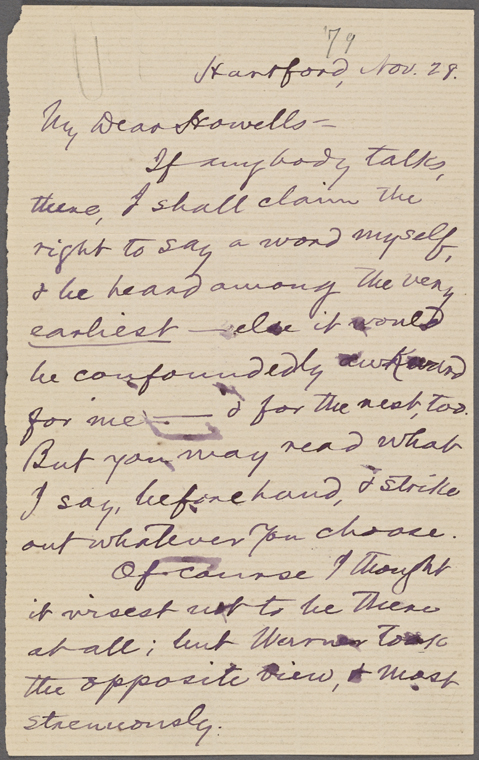 '79
Hartford, Nov. 29.
My Dear Howells—
If anybody talks,
there, I shall claim the
right to say a word myself,
& be heard among the very
earliest — else it would
be confoundedly awkward
for me — & for the rest, too.
But you may read what
I say, beforehand, & strike
out whatever you choose.
Of course I thought
it wisest not to be there
at all; but Warner took
the opposite view, & most
strenuously.